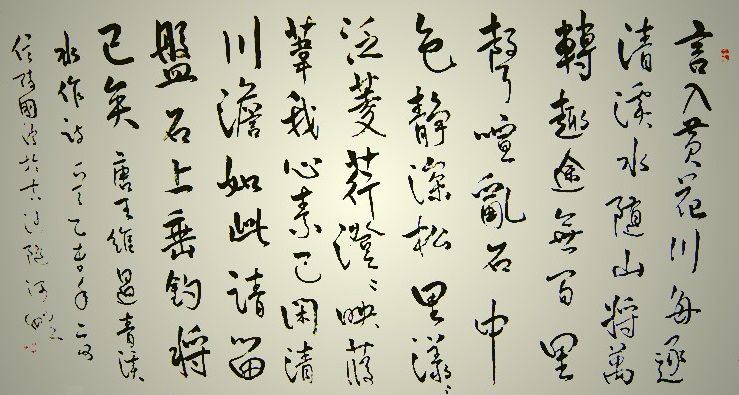 言入黄花川每逐
清溪水隨山將萬
轉趣途無百里
聲喧亂石中
色靜深松里漾〻
泛菱荇澄〻映葭
葦我心素已閑清
川澹如此請留
盤石上垂釣將
已矣 唐王維過青溪
水作詩 乙 年
信陵國